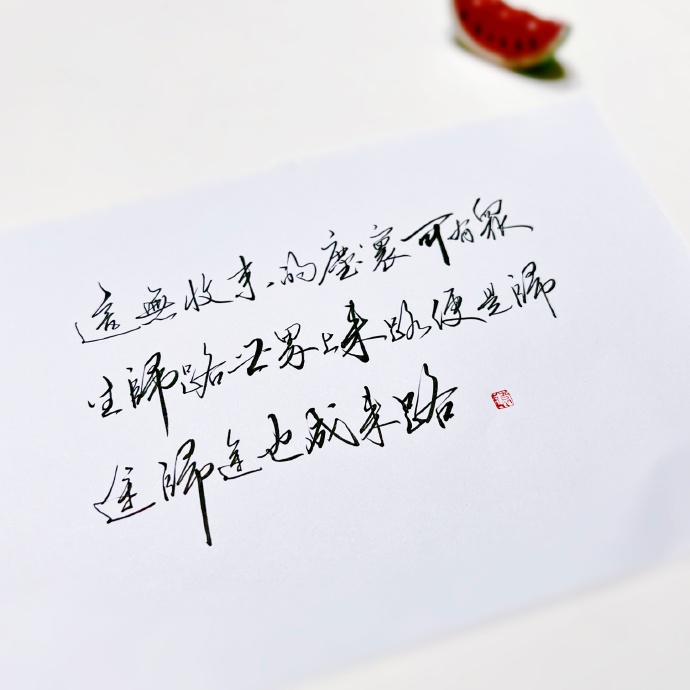 這無收束的塵寰可有眾
生歸路世界上來路便是歸
途歸途也成來路